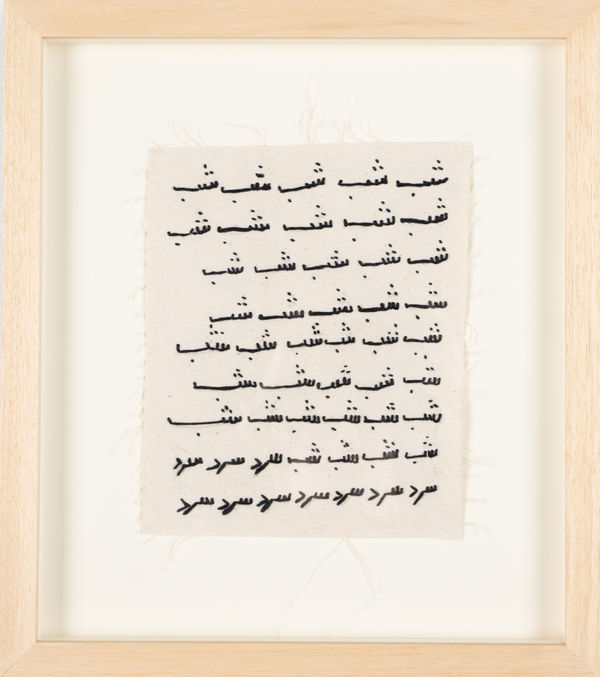 شب شب شب شب شب
شب شب شب شب شب
شب شب شب شب شب
شب شب شب شب شب
شب شب شب شب شب شب
شب شب شب شب شب
شب شب شب شب شب شب
شب شب شب شب سرد سرد سرد
سرد سرد سرد سرد سرد سرد سرد